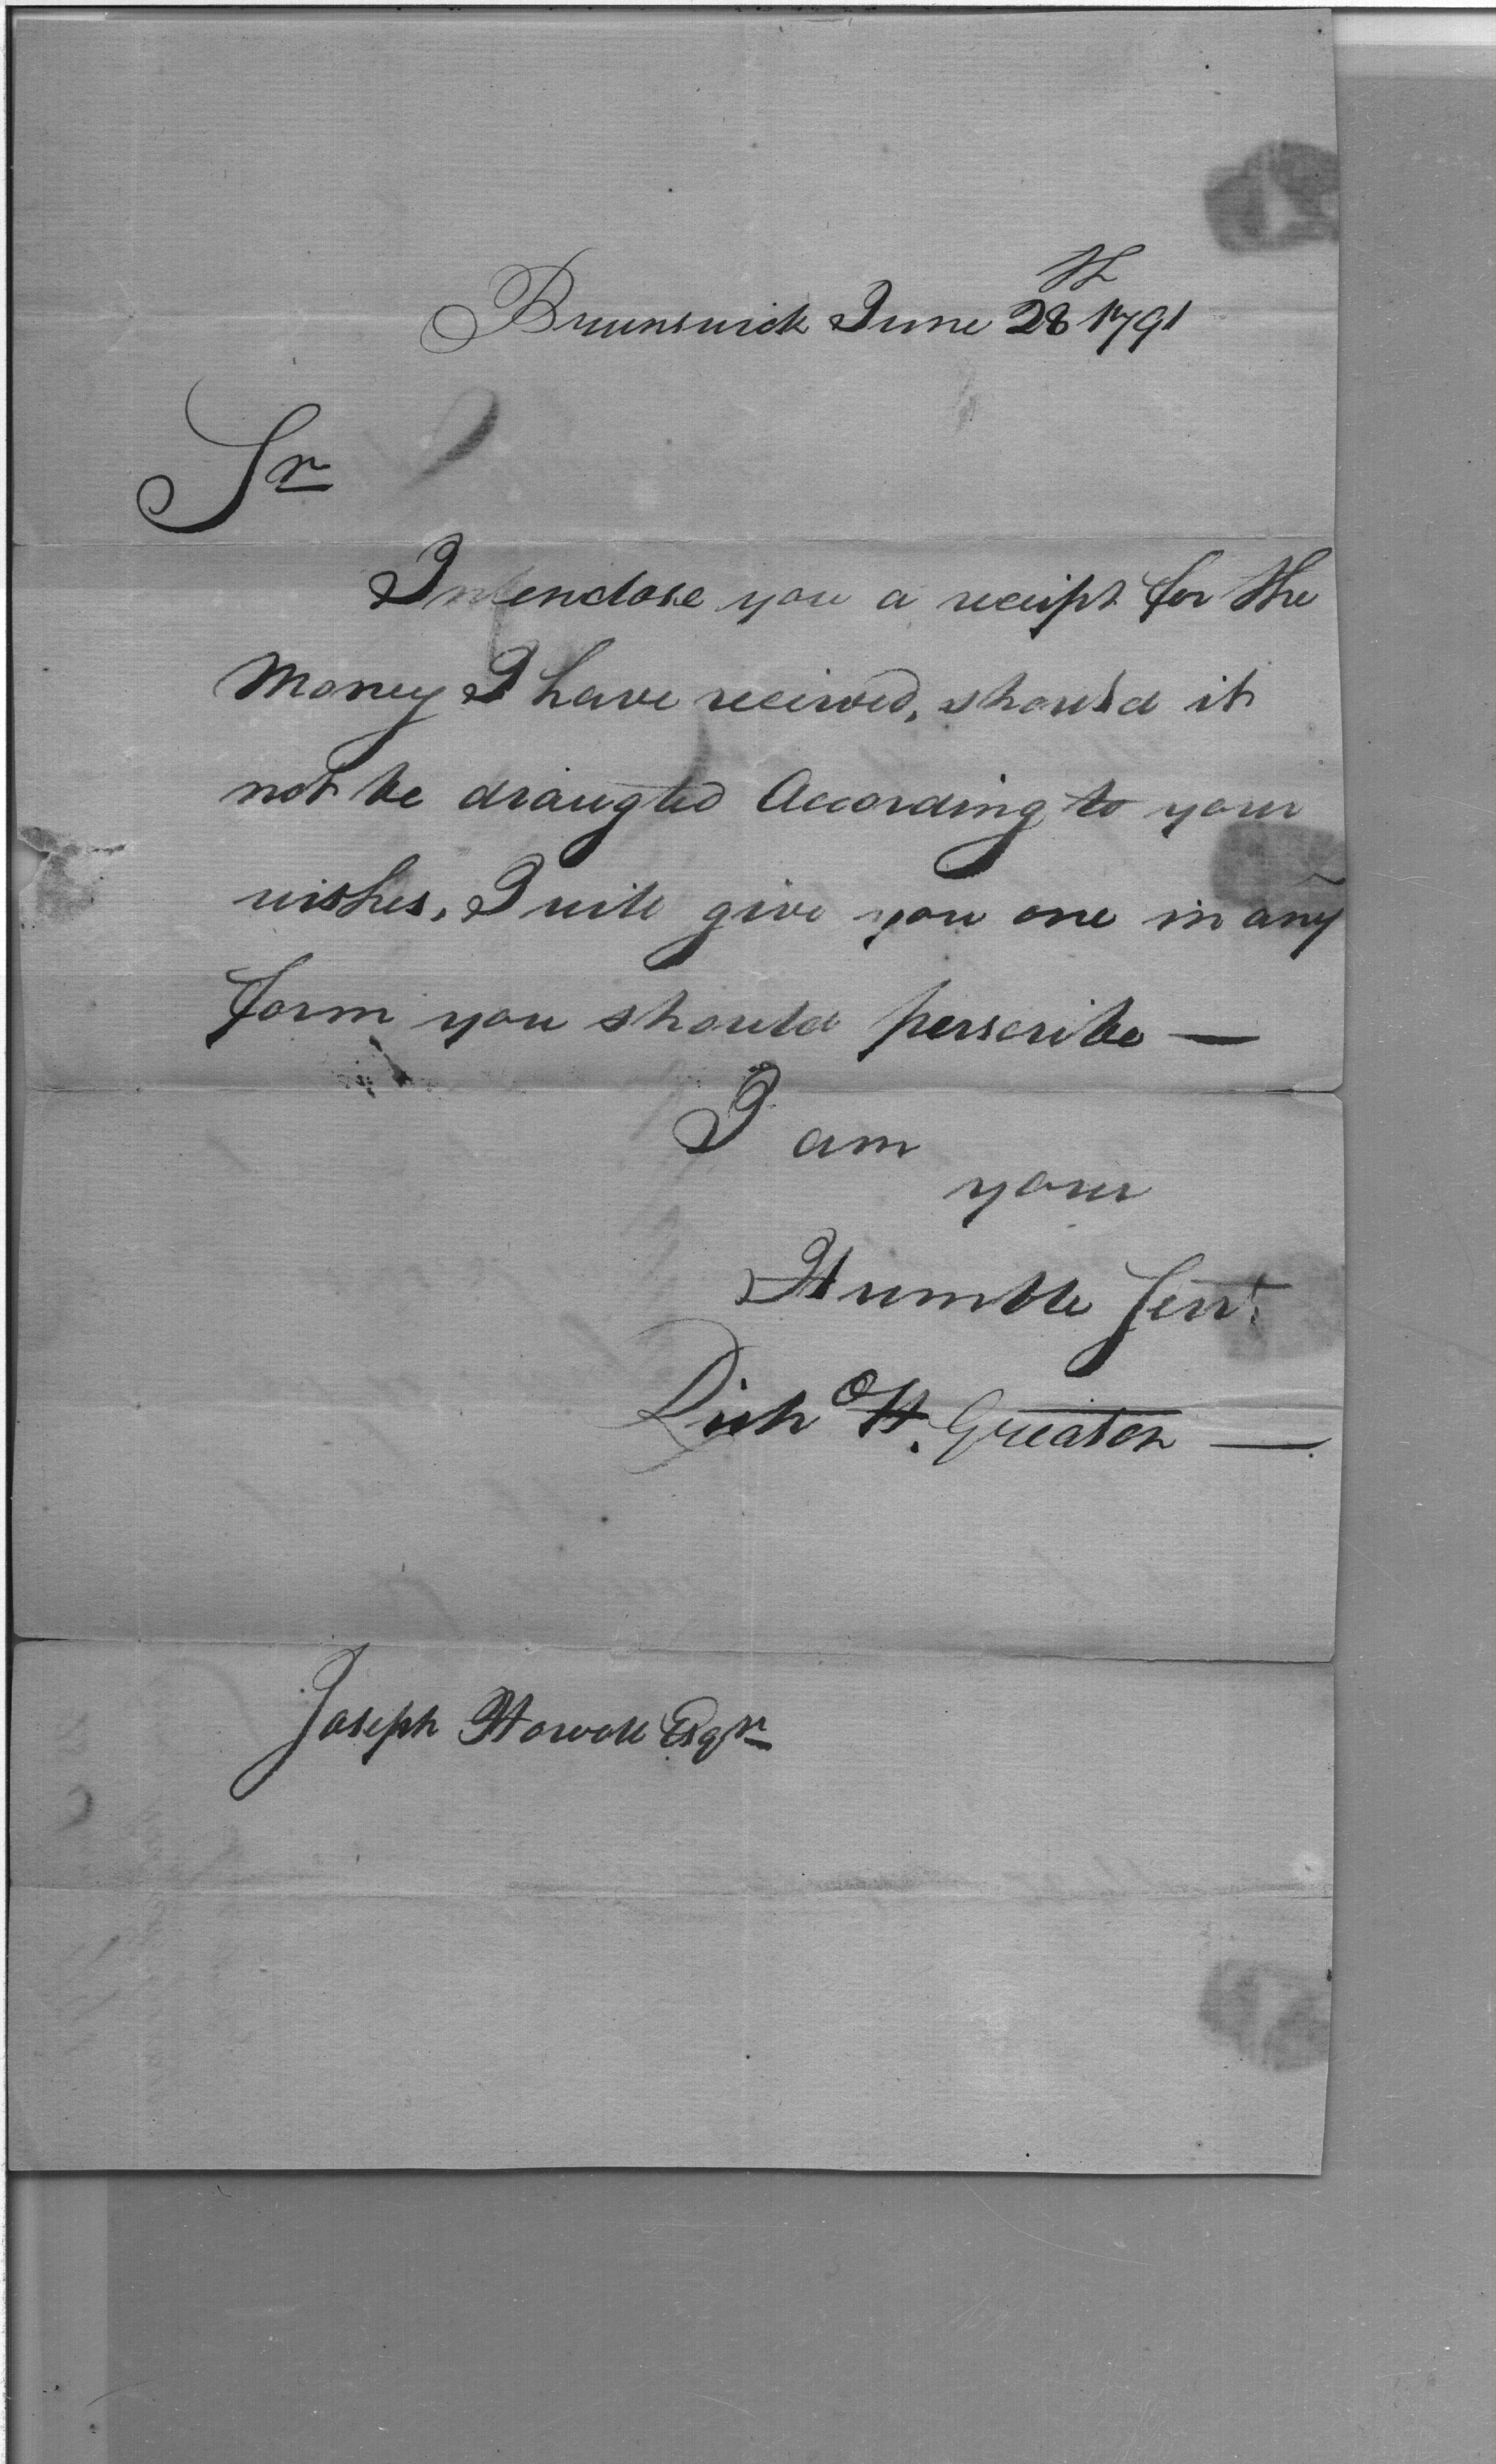 Brunswick June 28th 1791
Sr
I enclose you a receipt for the
Money I have received, should it
not be draugted According to your
wishes, I will give you one in any
form you should perscribe —
I am
your
Humble Servt.
Richd H. Greaton —
Joseph Howell Esqr